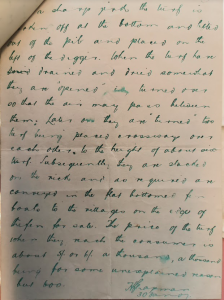 the turf is
taken off at the bottom and taken
out of the pit and placed on the
left of the digger. When the turf has
been drained and dried somewhat
they are opened, turned over
so that the air may pass between
them. Later on they are turned two
turf being placed crossway over
each other to the height of about one
turf. Subsequently they are stacked
on the rack and as required are
conveyed in the flat bottomed
boats to the villages on the edges of
the fen for sale. The price of the turf
when they reach the consumer is
about a thousand, a thousand
being for some unexplained reason
but 600.